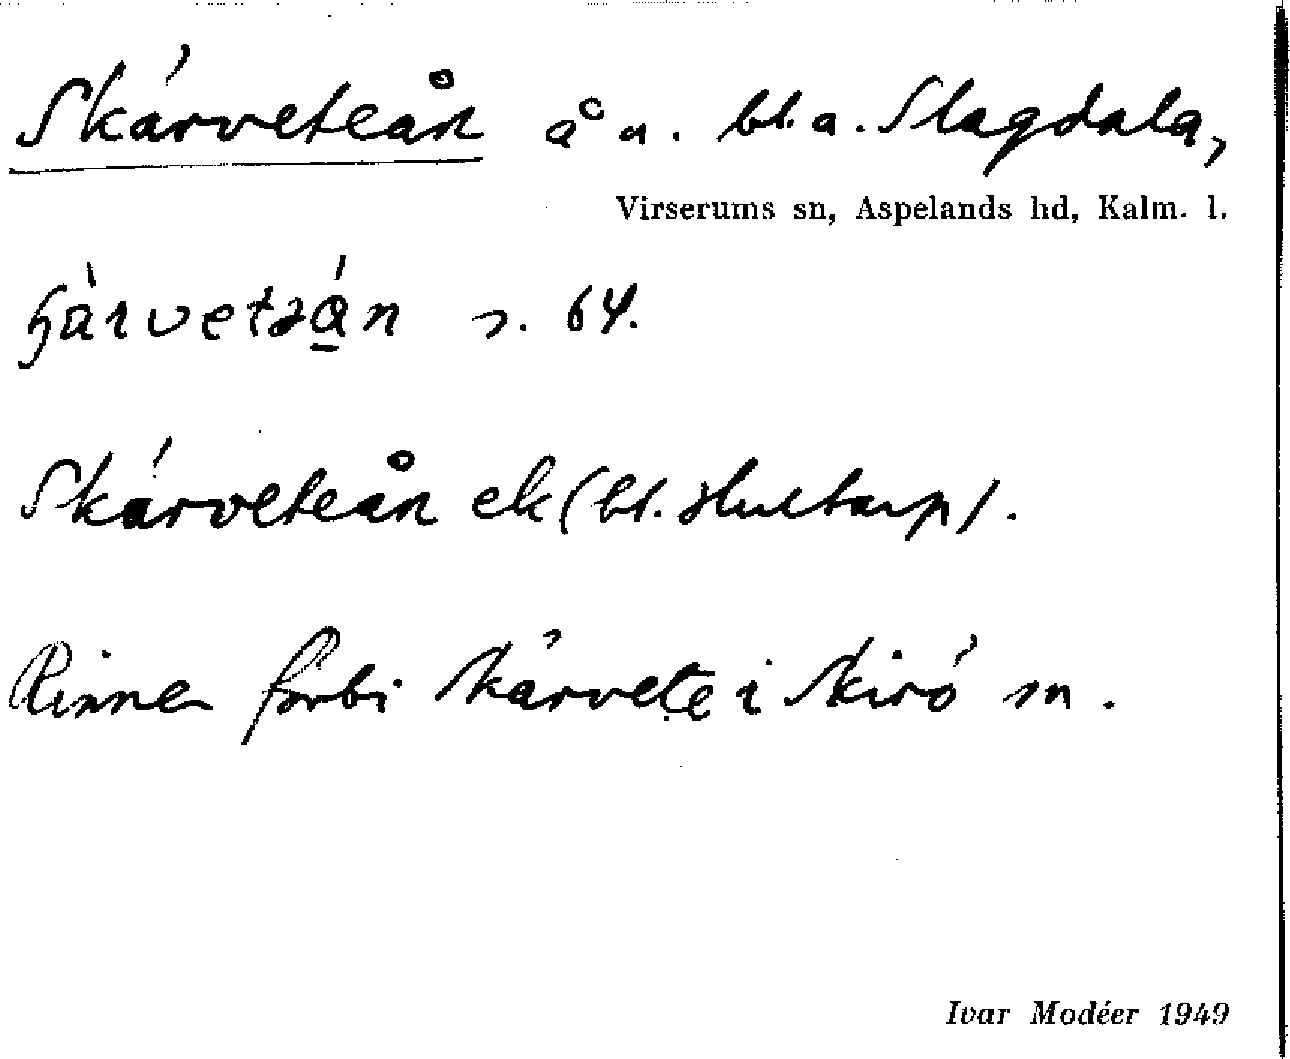 Skärveteån å n. bl. a. Slagdala,
Virserums sn, Aspelands hd, Kalm. l.
s. 64.
Skärveteån ek (bl. Hultarp).
Rinner förbi Skärvete i Skirö sn.
Ivar Modéer 1949